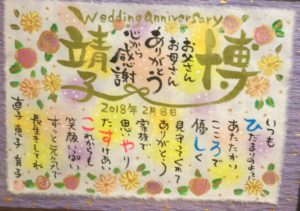 Wedding Anniversary
博
お父さん
お母さん
ありがとう
心から感謝
靖子
2018年2月8日
いつも
ひだまりのように
あたたかい
こころで
優しく
見守ってくれて
ありがとう
家族で
思いやり
たすけあい
これからも
笑顔いっぱい
すごく元気で
長生きしてね
恵子 育子